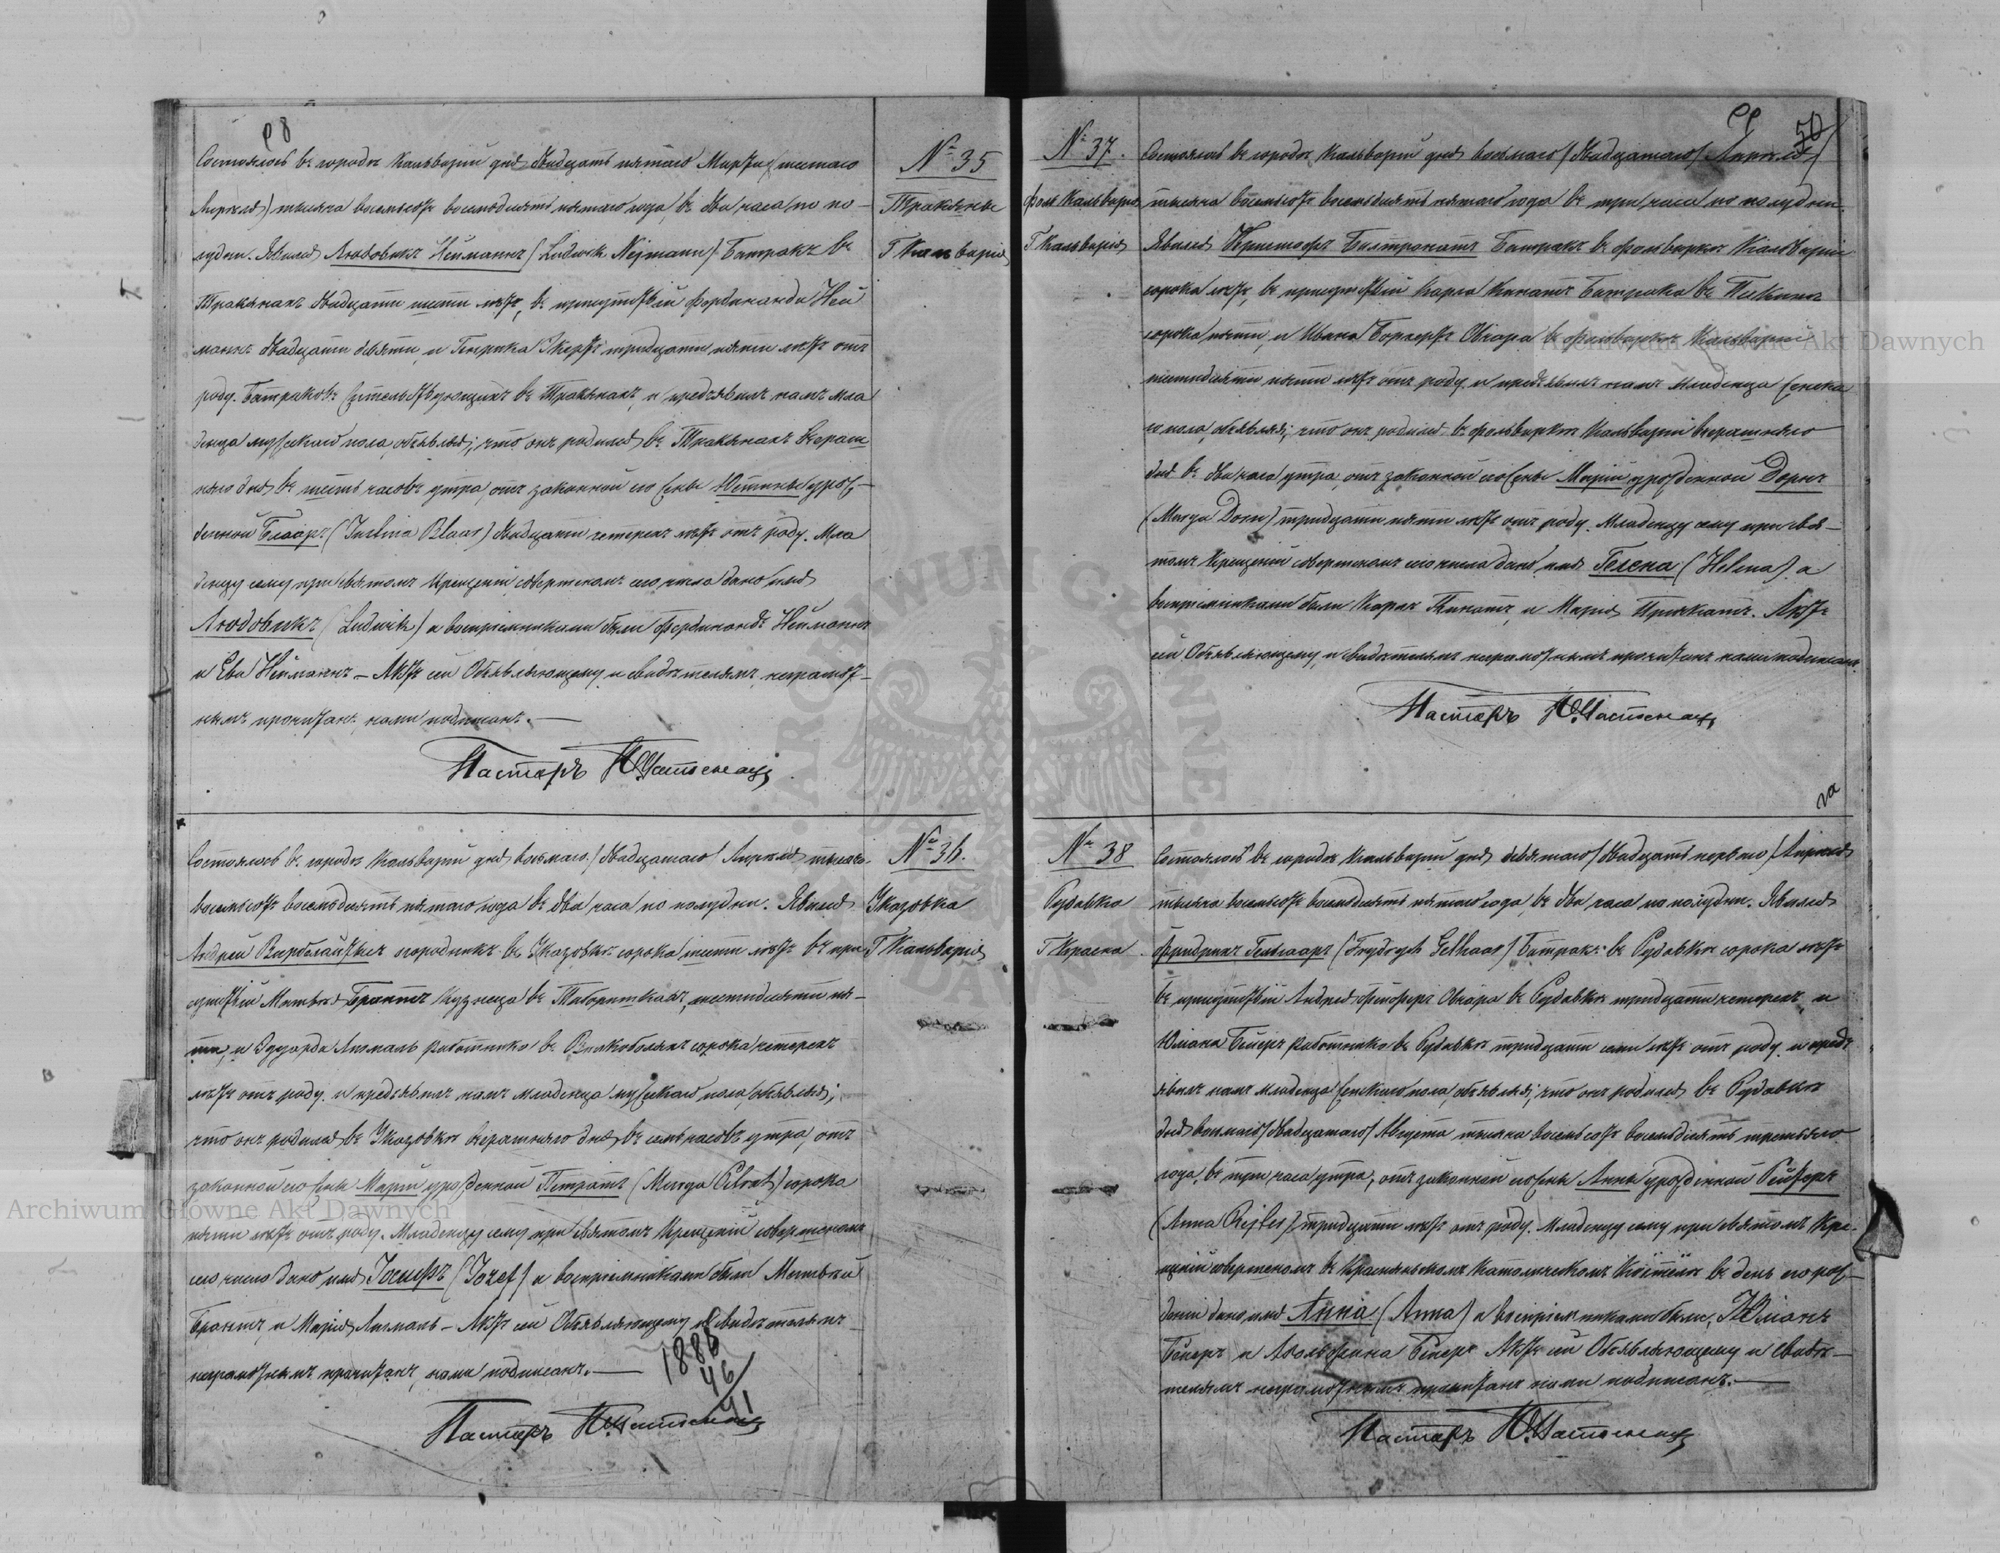 98
№ 35
Тракяны
Г. Кальварія
Состоялось въ городѣ Кальваріи дня двадцать пятаго Марта (шестаго
Апрѣля) тысяча восемьсотъ восемьдесятъ пятаго года, въ два часа по по-
лудни. Явился Людовикъ Нейманъ (Ludwik Nejmann) Батракъ въ
Тракянахъ двадцати шести лѣтъ, въ присутствіи Фердинанда Ней
манъ двадцати девяти, и Генрика Экертъ тридцати пяти лѣтъ отъ
роду. Батраковъ жительствующихъ въ Тракянахъ, и предъявилъ намъ мла
денца мужескаго пола, объявляя; что онъ родился въ Тракянахъ вчераш
няго дня въ шесть часовъ утра, отъ законной его жены Юстины урож-
денной Блааръ (Justina Blaar) двадцати четырехъ лѣтъ отъ роду. Мла
денцу сему при святомъ крещеніи совершеномъ сего числа дано имя
Людовикъ (Ludwik) а воспріемниками были Фердинандъ Нейманъ
и Ева Нейманъ – Актъ сей Объявляющему и свидѣтелямъ, неграмот-
нымъ прочитанъ, нами подписанъ. —
Пасторъ
№ 36.
Г. Кальварія
Состоялось въ городѣ Кальваріи дня восьмаго (двадцатаго) Апрѣля тысяча
восемьсотъ восемьдесятъ пятаго года въ два часа по полудни. Явился
Андрей огородникъ въ сорока шести лѣтъ въ при-
сутствіи Матвѣя Брантъ кузнеца въ шестидесяти пя-
ти, и Эдуарда работника въ сорока четырехъ
лѣтъ отъ роду. и предъявилъ намъ младенца мужескаго пола, объявляя;
что онъ родился въ вчерашняго дня въ семь часовъ утра, отъ
законной его жены Маріи урожденной Петратъ (Marya Petrat) сорока
пяти лѣтъ отъ роду. Младенцу сему при святомъ крещеніи совершеномъ
сего числа дано имя Іосифъ (Jozef) а воспріемниками были Матвѣй
Брантъ и Марія – Актъ сей Объявляющему и свидѣтелямъ
неграмотнымъ прочитанъ, нами подписанъ. —
1886
46
41
Пасторъ
99
50
№ 37.
фоль. Кальварія
Г. Кальварія
Состоялось въ городѣ Кальваріи дня восьмаго (двадцатаго) Апрѣля
тысяча восемьсотъ восемьдесятъ пятаго года въ три часа по полудни.
Явился Батракъ въ фольваркѣ Кальваріи
сорока лѣтъ, въ присутствіи Карла Батрака въ
сорока пяти, и Ивана Овчара въ фольваркѣ Кальваріи
шестидесяти пяти лѣтъ отъ роду и предъявилъ намъ младенца женска
го пола, объявляя; что онъ родился въ фольваркѣ Кальваріи вчерашняго
дня въ два часа утра, отъ законной его жены Маріи урожденной Дорнъ
(Marya Dorn) тридцати пяти лѣтъ отъ роду. Младенцу сему при свя-
томъ крещеніи совершеномъ сего числа дано имя Гелена (Helena) а
воспріемниками были Карлъ и Марія Актъ
сей Объявляющему и свидѣтелямъ неграмотнымъ прочитанъ нами подписанъ.
Пасторъ
№ 38
Рудавка
Г. Красна
Состоялось въ городѣ Кальваріи дня девятаго (двадцать перваго) Апрѣля
тысяча восемьсотъ восемьдесятъ пятаго года, въ два часа по полудни. Явился
Фридрихъ Гельгааръ (Frydrych Gelhaar) Батракъ въ Рудавкѣ сорока лѣтъ
въ присутствіи Андрея Овчара въ Рудавкѣ тридцати четырехъ, и
Юліана Бейеръ работника въ Рудавкѣ тридцати семи лѣтъ отъ роду и предъ
явилъ намъ младенца женскаго пола, объявляя; что онъ родился въ Рудавкѣ
дня восьмаго (двадцатаго) Августа тысяча восемьсотъ восемьдесятъ третьяго
года, въ три часа утра, отъ законной его жены Анны урожденной Рейферъ
(Anna Rejfer) тридцати лѣтъ отъ роду. Младенцу сему при святомъ кре-
щеніи совершеномъ въ Краснянскомъ Католическомъ Костелѣ въ день его рож-
денія дано имя Анна (Anna) а воспріемниками были, Юліанъ
Бейеръ и Бейеръ Актъ сей Объявляющему и свидѣ-
телямъ неграмотнымъ прочитанъ нами подписанъ. —
Пасторъ
Archiwum Główne Akt Dawnych
Archiwum Główne Akt Dawnych